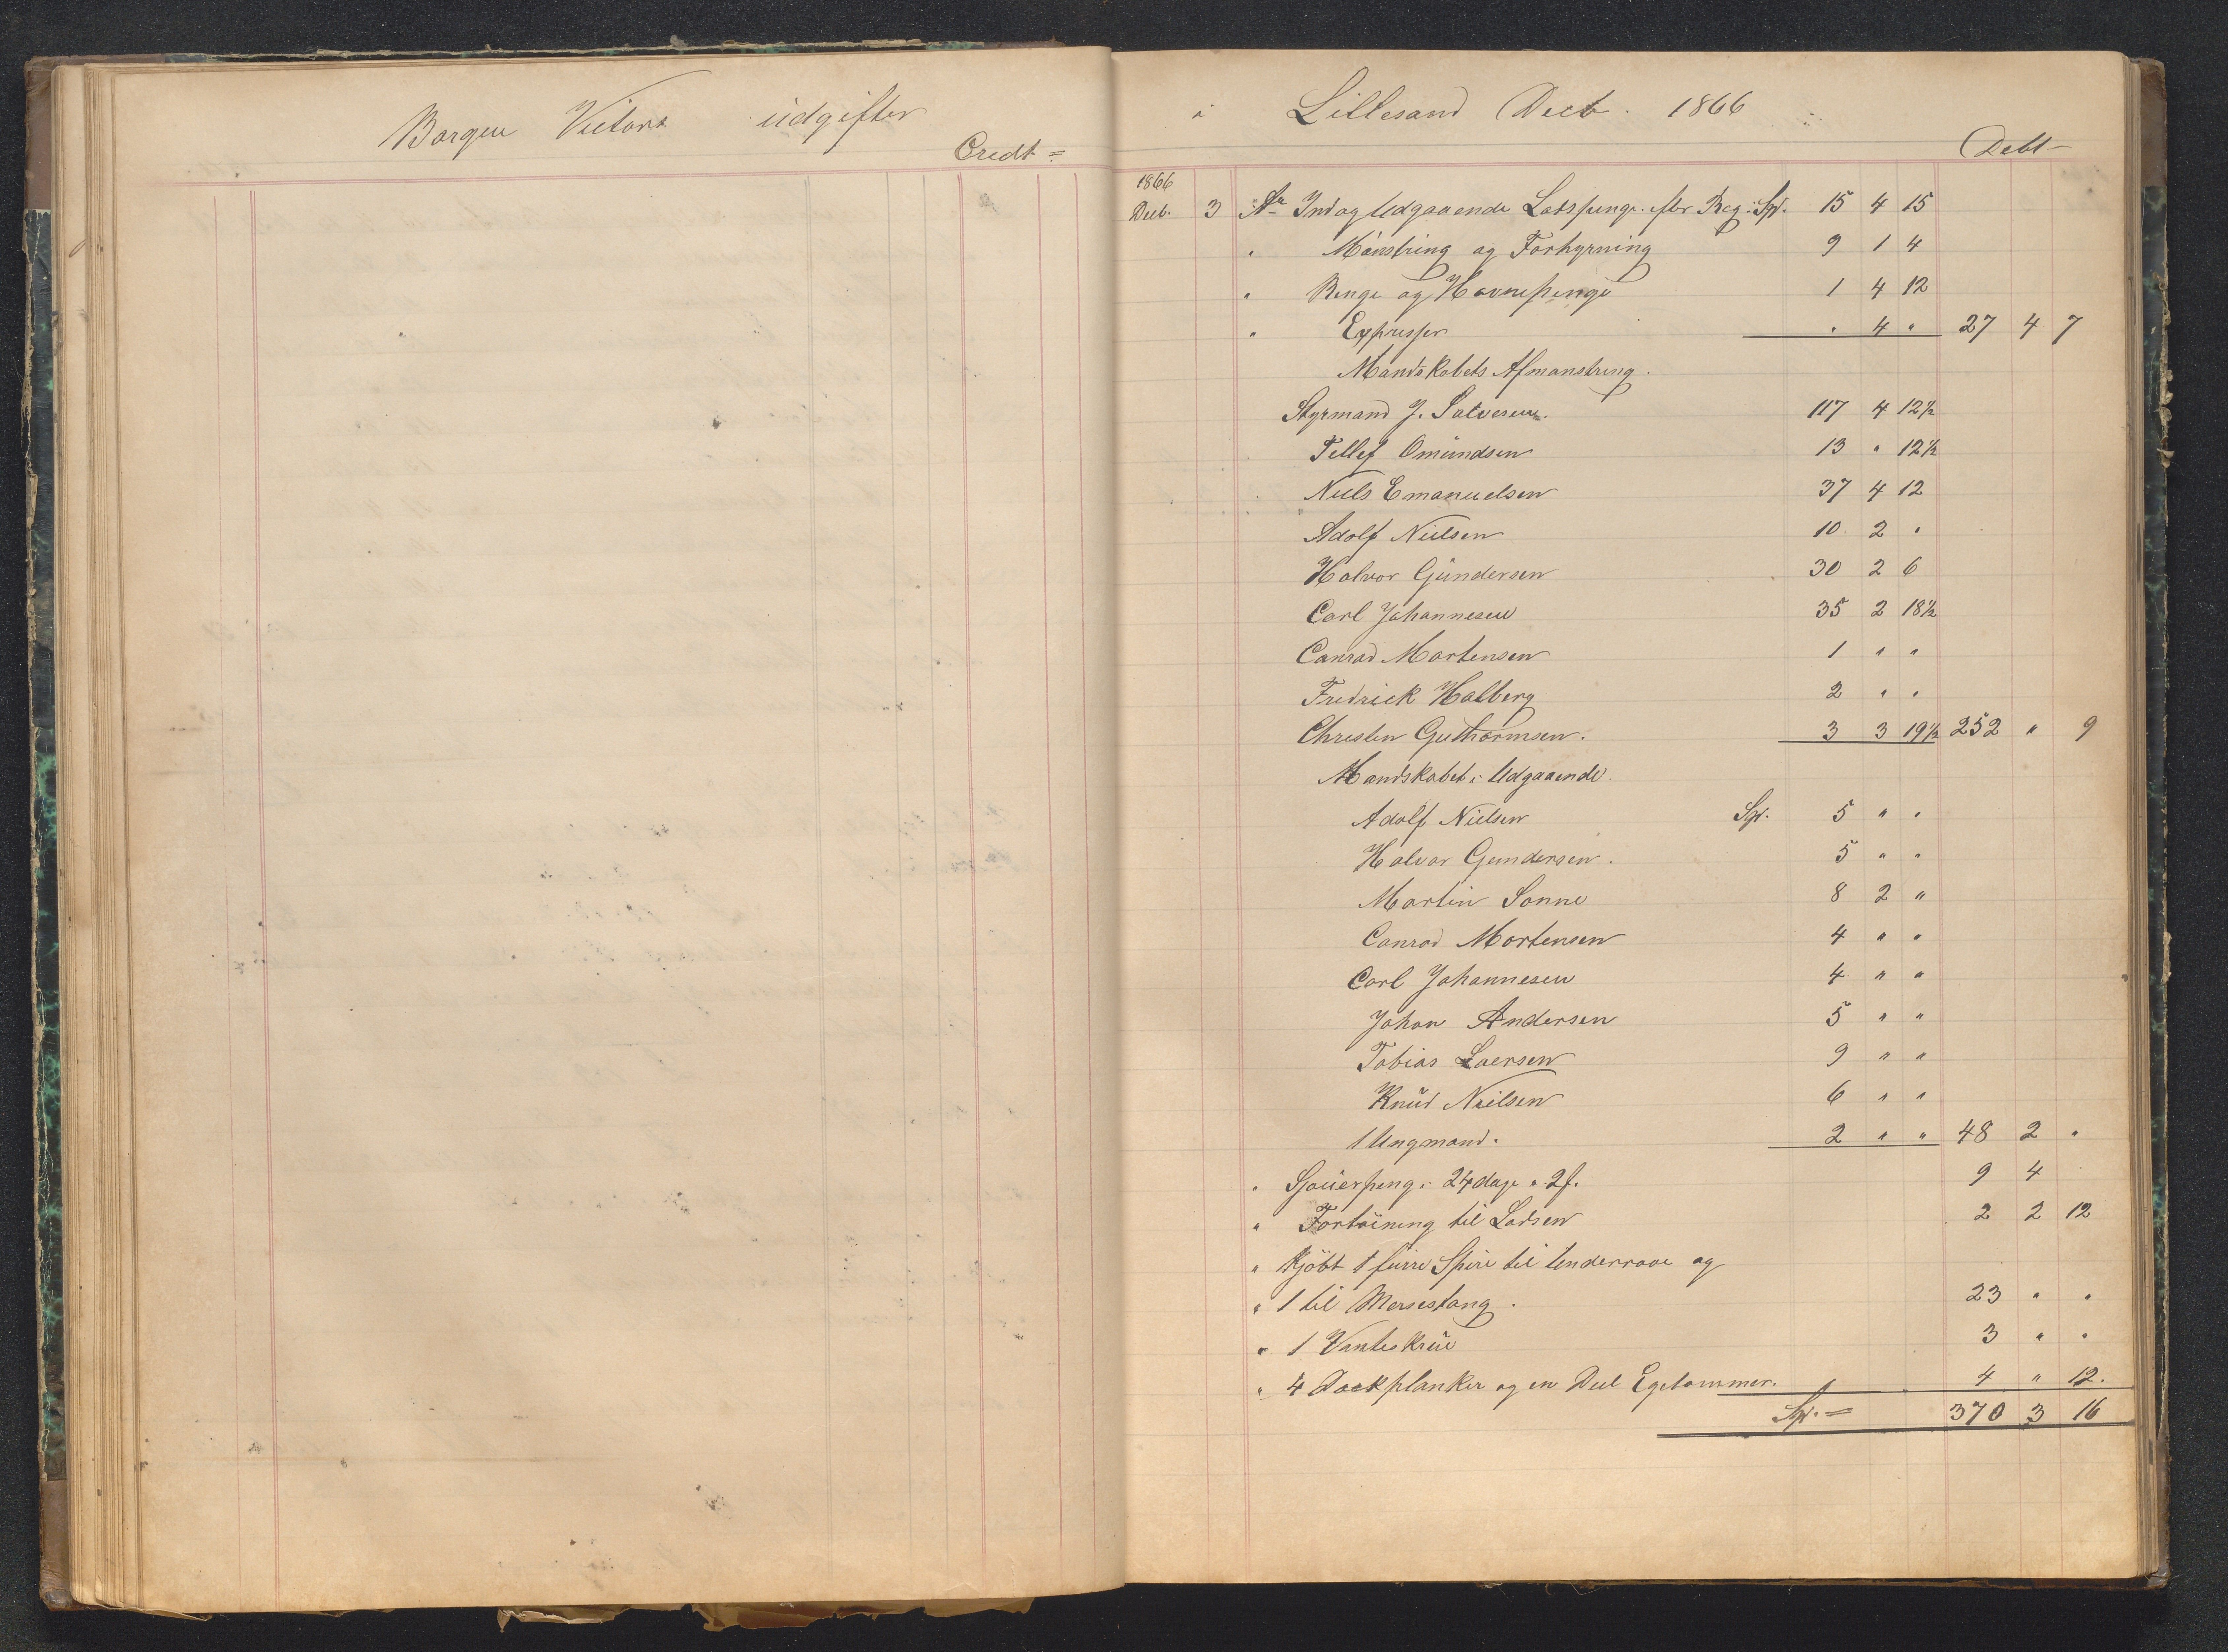 Barquen Victoria udgifter
Credt =
i Lillesand Decb. 1866
Debt
1866
Decb. 3 An Ind og Udgaaende Lodspenge efter Reg: Sp. 15 4 15
" Mönstring og Forhyrning 9 1 4
" Ringe og Havnepenge 1 4 12
" Expresser " 4 " 27 4 7
Mandskabets Afmönstring.
Styrmand J. Salvesen. 117 4 12½
Tellef Omundsen 13 " 12½
Niels Emanuelsen 37 4 12
Adolf Nielsen 10 2 "
Halvor Gundersen 30 2 6
Carl Johannesen 35 2 18½
Conrad Mortensen 1 " "
Fredrick Halberg 2 " "
Christen Guthormsen. 3 3 19½ 252 " 9
Mandskabet i Udgaaende.
Adolf Nielsen Sp. 5 " "
Halvor Gundersen. 5 " "
Martin Sonne 8 2 "
Conrad Mortensen 4 " "
Carl Johannesen 4 " "
Johan Andersen 5 " "
Tobias Laersen 9 " "
Knud Nielsen 6 " "
1 Ungmand. 2 " " 48 2 "
" Sjouerpeng i 24 dage a 2 f. 9 4
" Fortöining til Lodsen 2 2 12
" Kjöbt 1 furre Spire til Underraae og
" 1 til Mersestang. 23 " "
" 1 Vanteskrue 3 " "
" 4 Dackplanker og en Deel Egetömmer. 4 " 12.
Sp. = 370 3 16